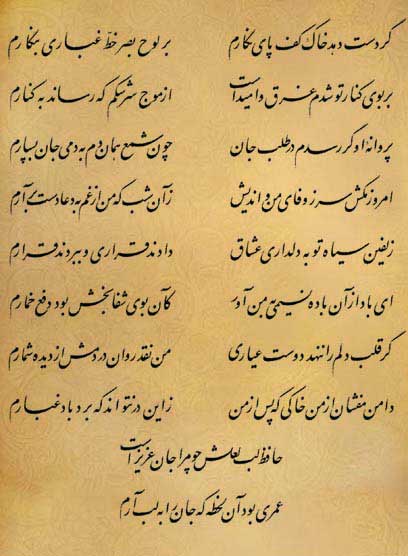 گر دست دهد خاک کف پای نگارم بر لوح بصر خط غباری بنگارم
بر بوی کنار تو شدم غرق و امید است از موج سرشکم که رساند به کنارم
پروانه او گر رسدم در طلب جان چون شمع همان دم به دمی جان بسپارم
امروز مکش سر ز وفای من و اندیش زان شب که من از غم به دعا دست برآرم
زلفین سیاه تو به دلداری عشاق دادند قراری و ببردند قرارم
ای باد از آن باده نسیمی به من آور کان بوی شفابخش بود دفع خمارم
گر قلب دلم را ننهد دوست عیاری من نقد روان در دمش از دیده شمارم
دامن مفشان از من خاکی که پس از من زین در نتواند که برد باد غبارم
حافظ لب لعلش چو مرا جان عزیز است
عمری بود آن لحظه که جان را به لب آرم